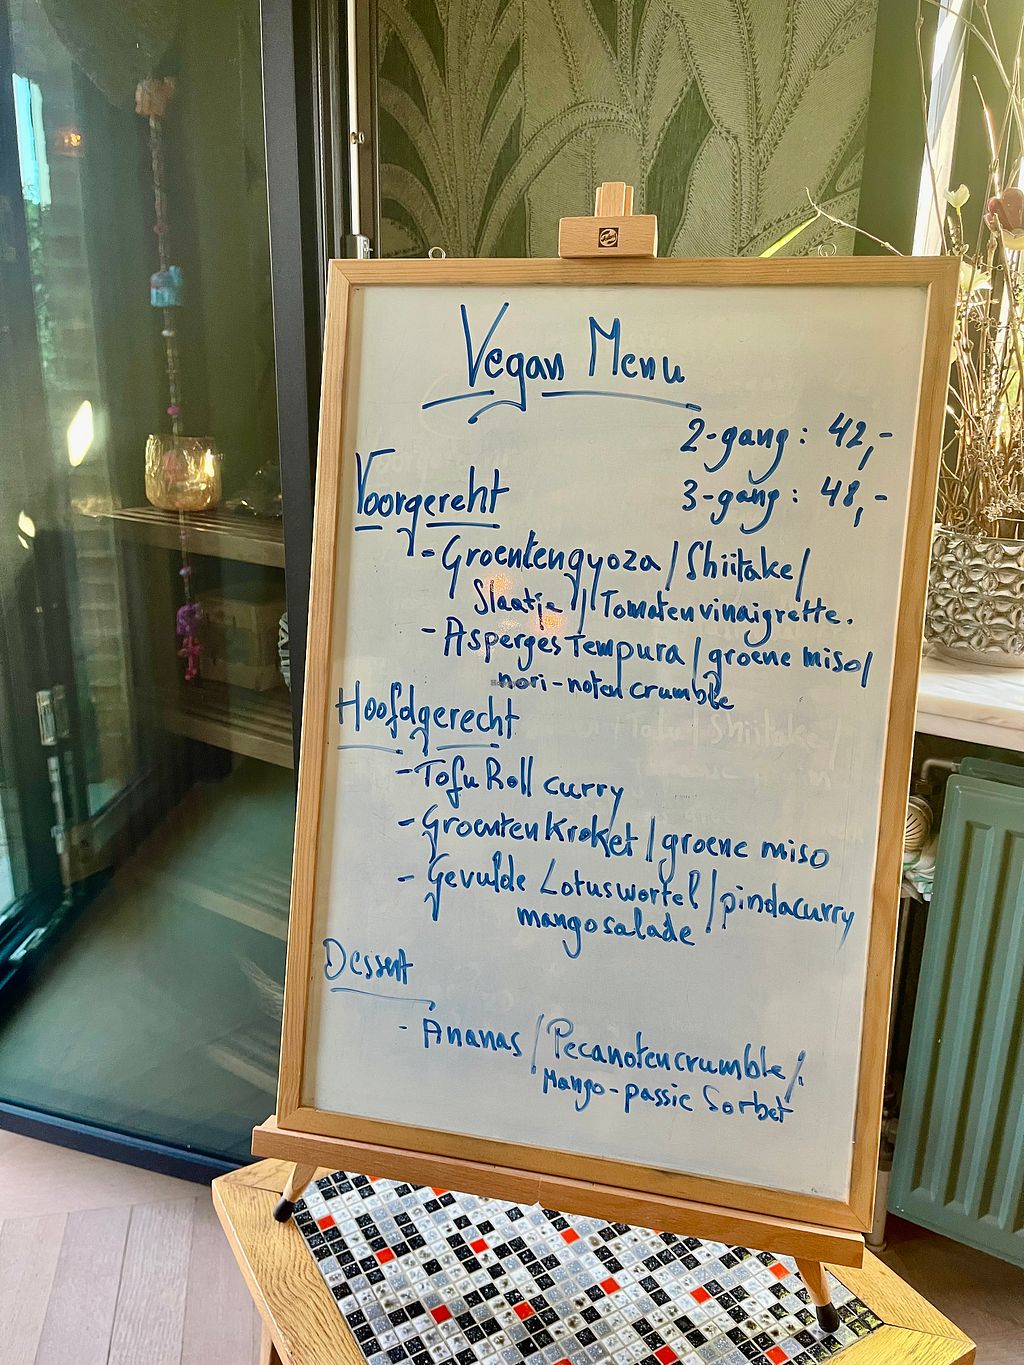 Vegan Menu
2-gang: 42,-
3-gang: 48,-
Voorgerecht
- Groentengyoza / Shiitake /
Slaatje / Tomatenvinaigrette.
- Asperges Tempura / groene miso /
nori-noten crumble
Hoofdgerecht
- Tofu Roll curry
- Groenten Kroket / groene miso
- Gevulde Lotuswortel / pindacurry
mangosalade
Dessert
- Ananas / Pecanotencrumble /
Mango-passie Sorbet